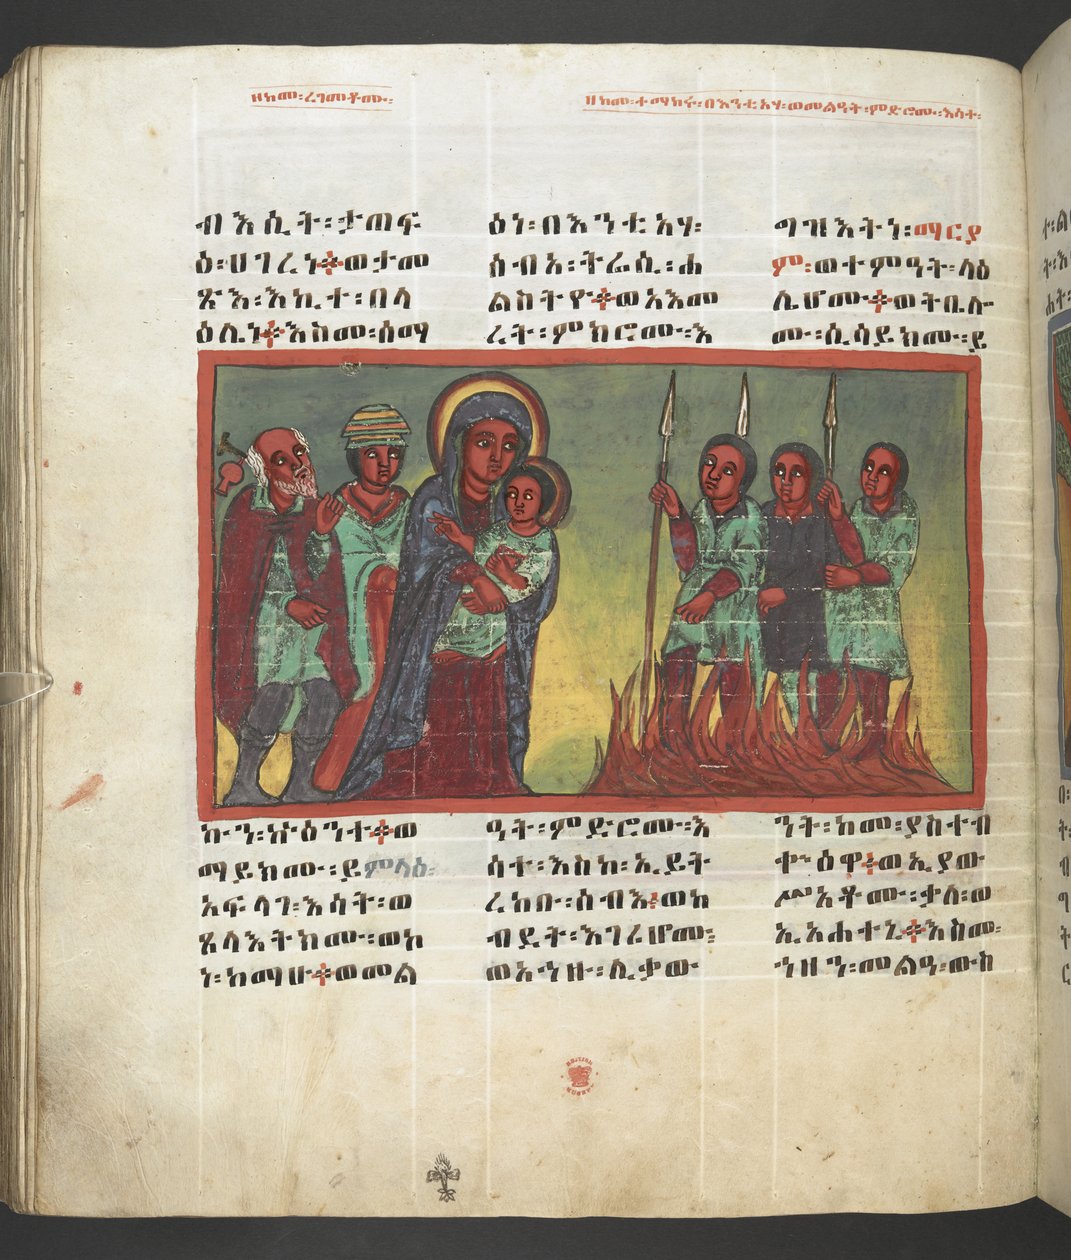 ዘከመ፡ረገመቶሙ፡
ዘከመ፡ተማከሩ፡በእንቲአሃ፡ወመልዓት፡ምድሮሙ፡እሳተ፡
ብእሲት፡ታጠፍ
ዕ፡ሀገረነ፡ወታመ
ጽእ፡እኪተ፡በላ
ዕሌነ፡እስመ፡ሰማ
ዕነ፡በእንቲአሃ፡
ሰብአ፡ትሬሲ፡ሐ
ልከትየ፡ወአእመ
ረት፡ምክሮሙ፡እ
ግዝእትነ፡ማርያ
ም፡ወተምዓት፡ላዕ
ሌሆሙ፡ወትቤሎ
ሙ፡ሲሳይክሙ፡ይ
ኩን፡ኵዕንተ፡ወ
ማይክሙ፡ይምላዕ፡
አፍላገ፡እሳት፡ወ
ጸላእትክሙ፡ወከ
ነ፡ከማሁ፡ወመል
ዓት፡ምድሮሙ፡እ
ሳተ፡እስከ፡ኢይት
ረከቡ፡ሰብእ፡ወከ
ብደት፡እገሪሆሙ፡
ወአኀዙ፡ሊቃው
ንት፡ከመ፡ያስተብ
ቍዕዋ፡ወኢያው
ሥአቶሙ፡ቃለ፡ወ
ኢአሐተኒ፡እስመ፡
ኀዘን፡መልዓ፡ውስ
BRITISH MUSEUM